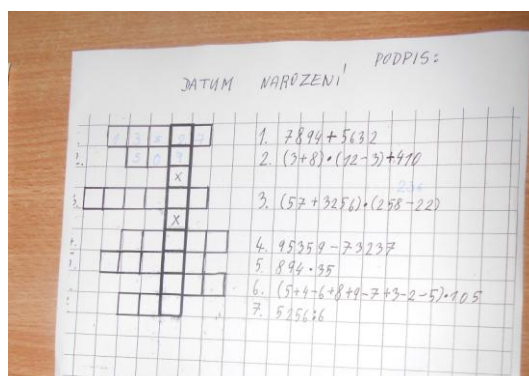 PODPIS:
DATUM NAROZENÍ
1. 7894+5632
2. (3+8)•(12-3)+410
x
236
3. (57+3256)•(258-22)
x
4. 95359-73237
5. 894•35
6. (5+4-6+8+9-7+3-2-5)•105
7. 5256:6